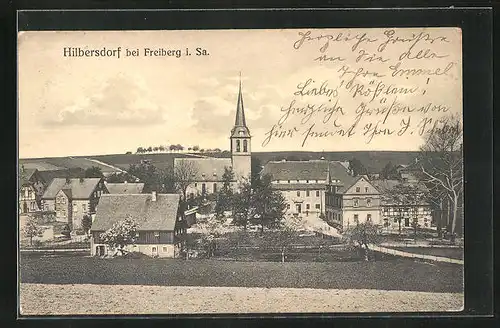 Hilbersdorf bei Freiberg i. Sa.
Herzliche Grüsse
an Sie alle
Ihre Emmel
Liebes Rößlein!
herzliche Grüße von
hier sendet Ihr J.